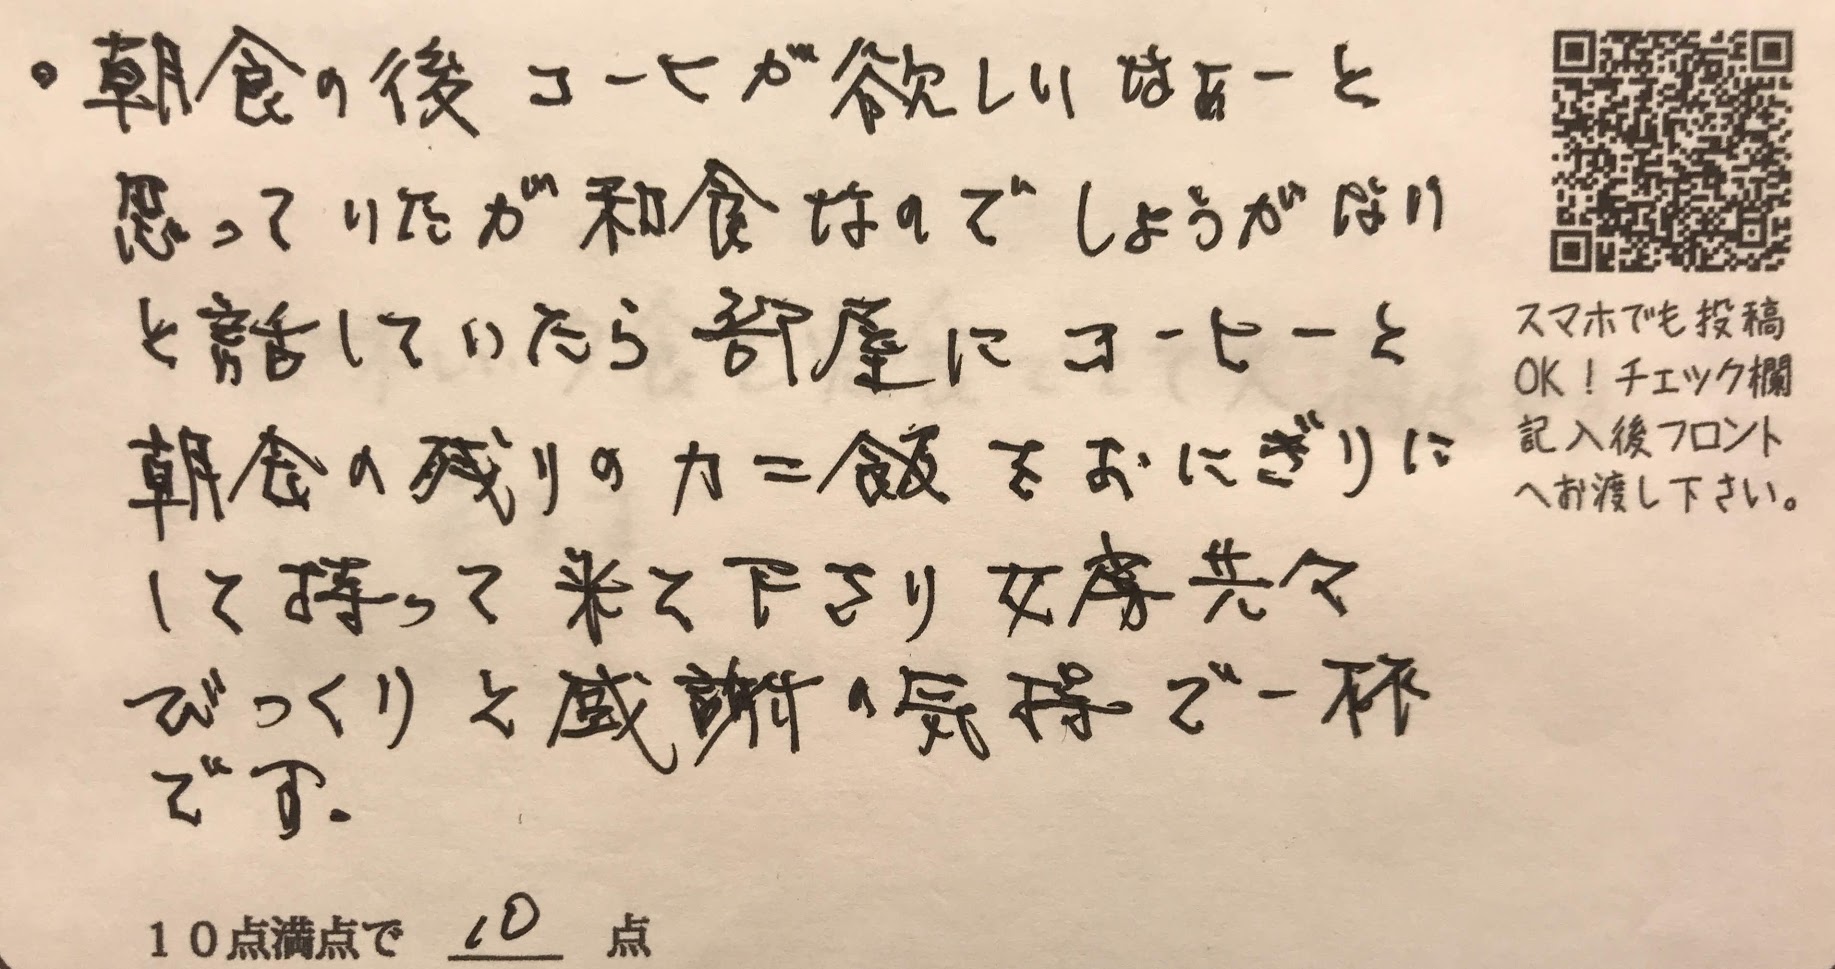 。朝食の後コーヒが欲しいなぁーと
思っていたが和食なのでしょうがない
と話していたら部屋にコーヒーと
朝食の残りのカニ飯をおにぎりに
して持って来て下さり女房共々
びっくりと感謝の気持で一杯
です.
スマホでも投稿
OK！チェック欄
記入後フロント
へお渡し下さい。
10点満点で 10 点